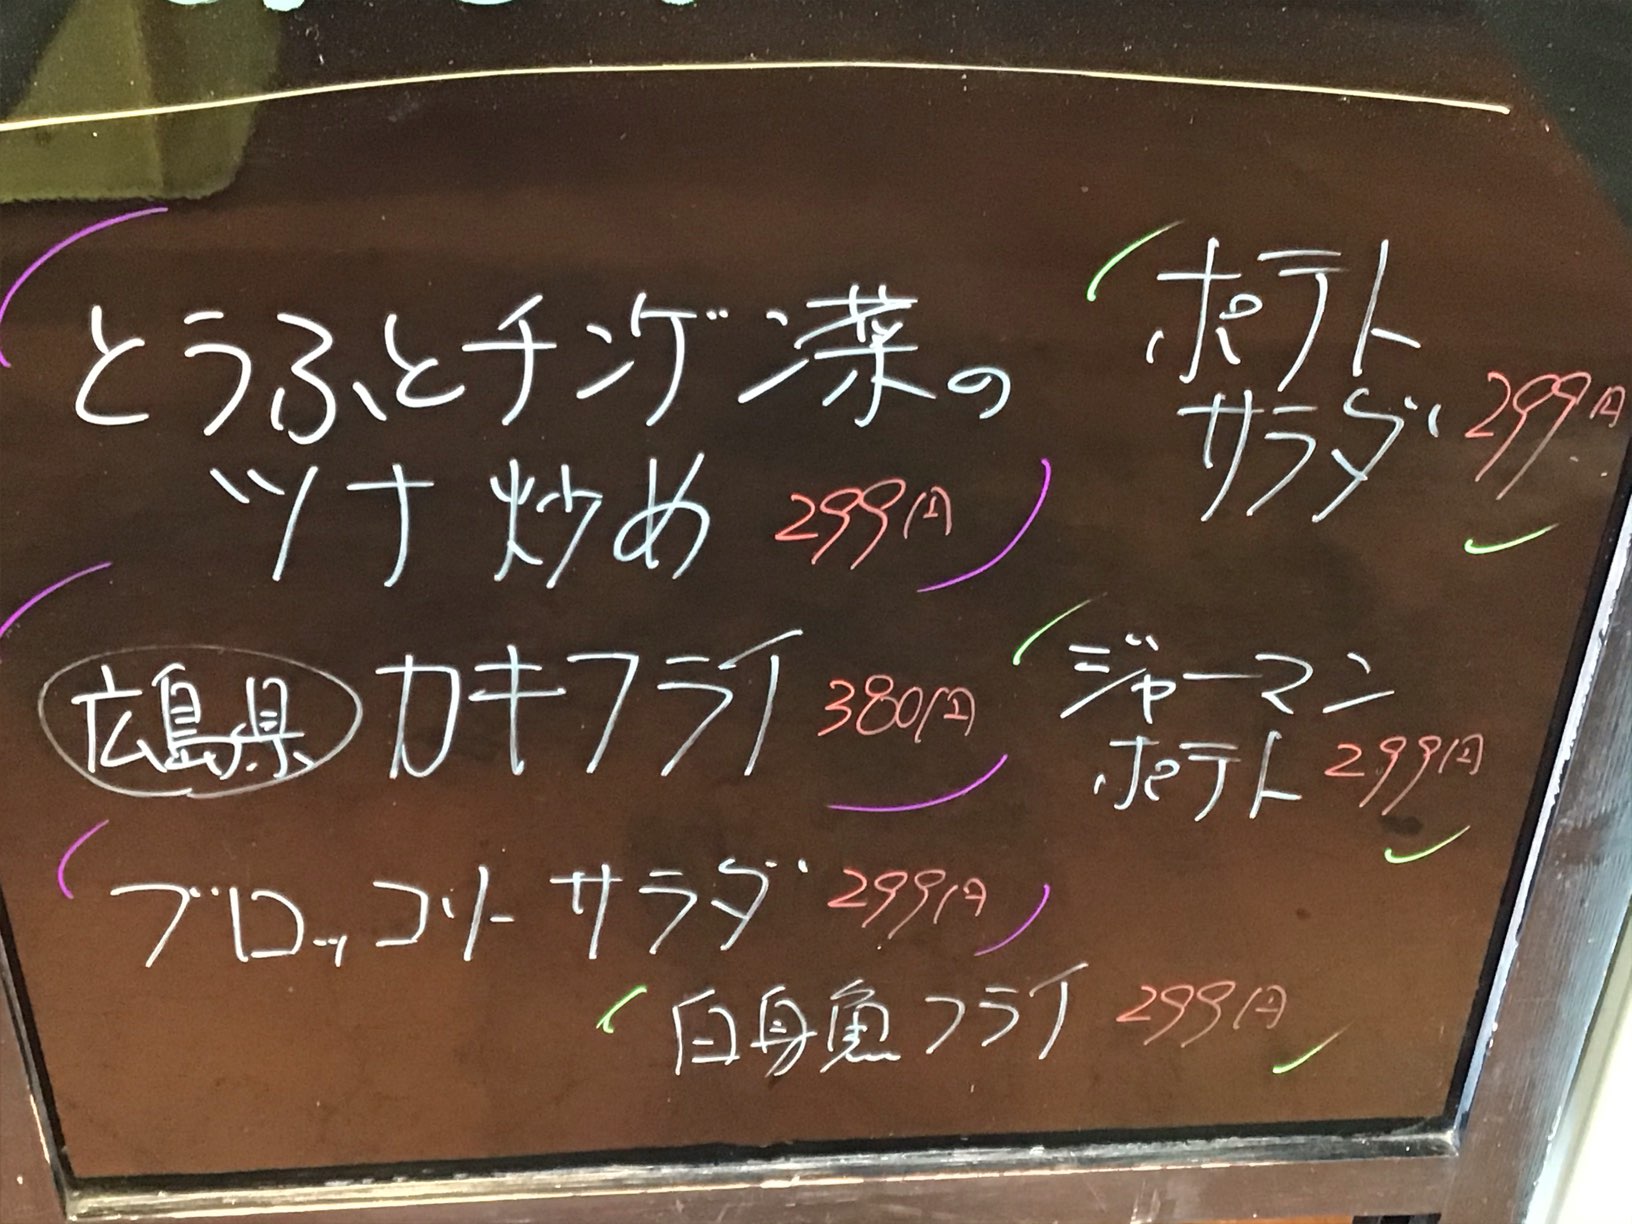 とうふとチンゲン菜の
ツナ炒め 299円
広島県 カキフライ 380円
ブロッコリーサラダ 299円
白身魚フライ 299円
ポテト
サラダ 299円
ジャーマン
ポテト 299円